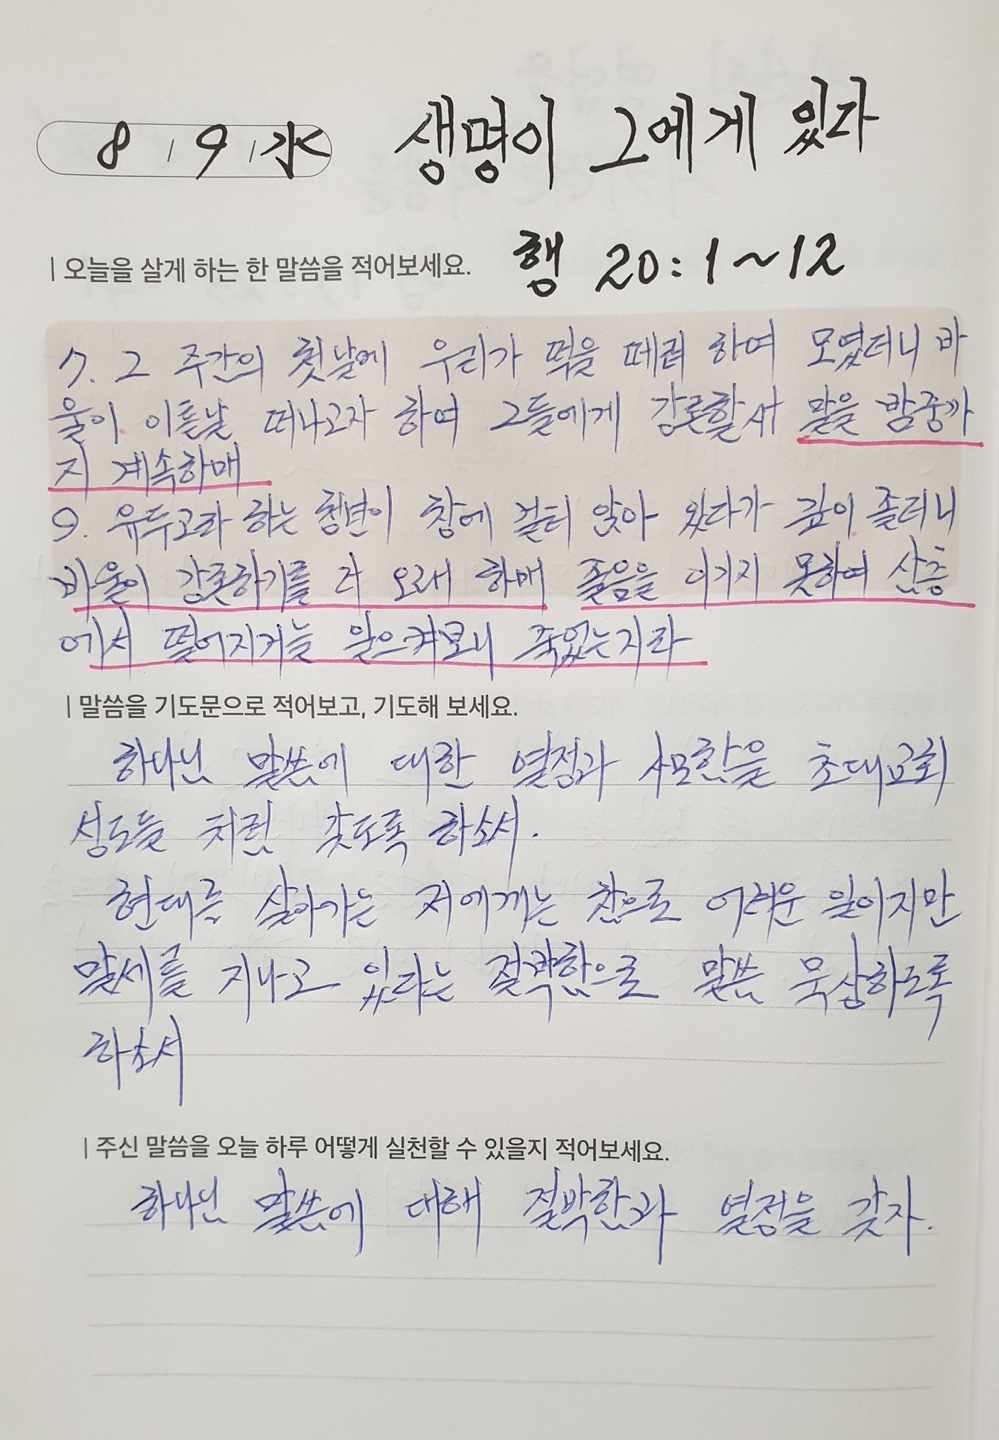 8 / 9 / 水 생명이 그에게 있다
| 오늘을 살게 하는 한 말씀을 적어보세요. 행 20:1~12
7. 그 주간의 첫날에 우리가 떡을 떼려 하여 모였더니 바
울이 이튿날 떠나고자 하여 그들에게 강론할새 말을 밤중까
지 계속하매
9. 유두고라 하는 청년이 창에 걸터 앉아 있다가 깊이 졸더니
바울이 강론하기를 더 오래 하매 졸음을 이기지 못하여 삼층
에서 떨어지거늘 일으켜보니 죽었는지라
| 말씀을 기도문으로 적어보고, 기도해 보세요.
하나님 말씀에 대한 열정과 사모함을 초대교회
성도들 처럼 갖도록 하소서.
현대를 살아가는 저에게는 참으로 어려운 일이지만
말세를 지나고 있다는 절박함으로 말씀 묵상하도록
하소서
| 주신 말씀을 오늘 하루 어떻게 실천할 수 있을지 적어보세요.
하나님 말씀에 대해 절박함과 열정을 갖자.